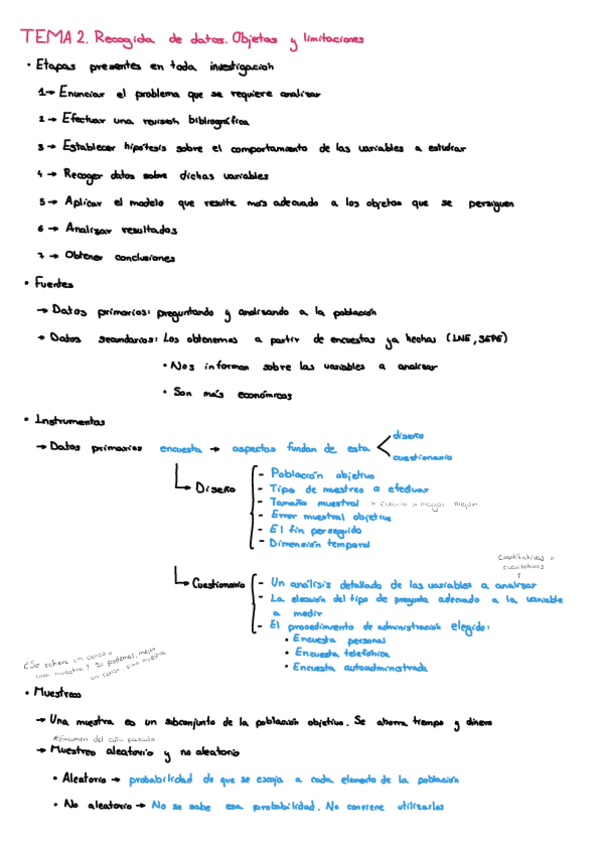 TEMA 2. Recogida de datos. Objetos y limitaciones
• Etapas presentes en toda investigación
1→ Enunciar el problema que se requiere analizar
2 → Efectuar una revisión bibliográfica
3 → Establecer hipótesis sobre el comportamiento de las variables a estudiar
4 → Recoger datos sobre dichas variables
5 → Aplicar el modelo que resulte más adecuado a los objetos que se persiguen
6 → Analizar resultados
7 → Obtener conclusiones
• Fuentes
→ Datos primarios: preguntando y analizando a la población
→ Datos secundarios: Los obtenemos a partir de encuestas ya hechas (INE, SEPE)
• Nos informan sobre las variables a analizar
• Son más económicos
• Instrumentos
→ Datos primarios encuesta → aspectos fundan de esta < diseño
cuestionario
Diseño
- Población objetivo
- Tipo de muestreo a efectuar
- Tamaño muestral > cuanto > mayor mejor
- Error muestral objetivo
- El fin perseguido
- Dimensión temporal
cuantitativas o
cualitativas
?
Cuestionario
- Un análisis detallado de las variables a analizar
- La elección del tipo de pregunta adecuado a la variable
a medir
- El procedimiento de administración elegido:
• Encuesta personal
• Encuesta telefónica
• Encuesta autoadministrada
¿Se refiere un censo o
una muestra? Si podemos, mejor
un censo, sino muestra
• Muestreos
→ Una muestra es un subconjunto de la población objetivo. Se ahorra tiempo y dinero
Examen del año pasado
→ Muestreo aleatorio y no aleatorio
• Aleatorio → probabilidad de que se escoja a cada elemento de la población
• No aleatorio → No se sabe esa probabilidad. No conviene utilizarlos